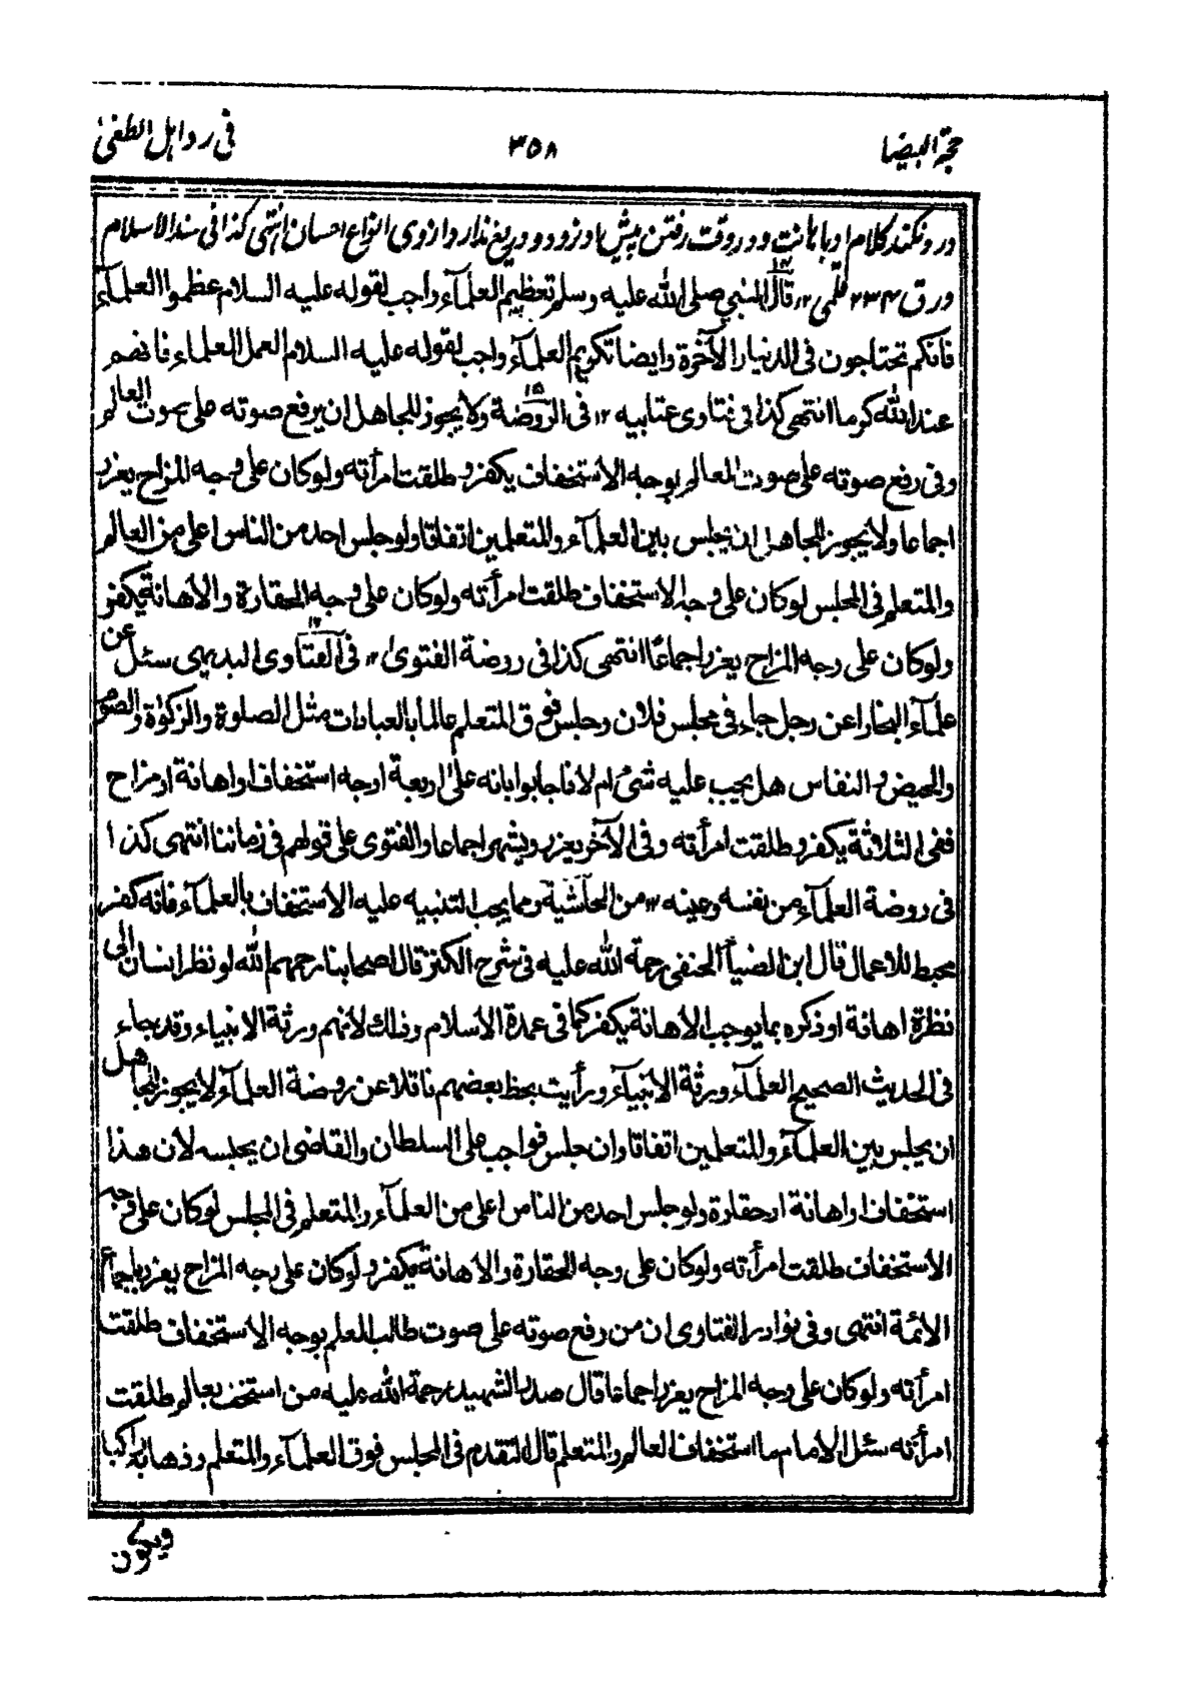 حجة البيضا ٣٥٨ فى
در ونكند كلام او باهانت ودر وقت رفتن پيش او نرود ودريغ ندارد ازوى انواع احسان انتهى كذا فى سند الاسلام
ورق ٢٣٤ قلمى ١٢ قال النبي صلى الله عليه وسلم تعظيم العلمآء واجب لقوله عليه السلام عظموا العلمآء
فانكم تحتاجون فى الدنيا والآخرة وايضا تكريم العلمآء واجب لقوله عليه السلام العلماء فانهم
عند الله كرما انتهى كذا فى فتاوى عتابيه ١٢ فى الروضة ولا يجوز للجاهل ان يرفع صوته على صوت العالم
وفى رفع صوته على صوت العالم بوجه الاستخفاف يكفر و طلقت امرأته ولو كان على وجه المزاح يعزر
اجماعا ولا يجوز للجاهل ان يجلس بين العلمآء والمتعلمين اتفاقا ولو جلس احد من الناس اعلى من العالم
والمتعلم فى المجلس لو كان على وجه الاستخفاف طلقت امرأته ولو كان على وجه الحقارة والاهانة يكفر
ولو كان على وجه المزاح يعزر اجماعا انتهى كذا فى روضة الفتوى ١٢ فى الفتاوى البديهى سئل عن
علمآء البخارا عن رجل جاء فى مجلس فلان وجلس فوق المتعلم عالما بالعبادات مثل الصلوة والزكوة والصوم
والحيض والنفاس هل يجب عليه شئ ام لا فاجابوا بانه على اربعة اوجه استخفاف او اهانة او مزاح
ففى الثلاثة يكفر و طلقت امرأته وفى الآخر يعزر ويشهر اجماعا والفتوى على قولهم فى زماننا انتهى كذا
فى روضة العلمآء من نفسه وعينه ١٢ من الحاشية ومما يجب التنبيه عليه الاستخفاف بالعلمآء فانه كفر
محبط للاعمال قال ابن الضيآ الحنفى رحمة الله عليه فى شرح الكنز قال اصحابنا رحمهم الله لو نظر انسان الى
نظرة اهانة او ذكره بما يوجب الاهانة يكفر كما فى عمدة الاسلام وذلك لانهم ورثة الانبياء وقد جاء
فى الحديث الصحيح العلمآء ورثة الانبيآء ورأيت بخط بعضهم ناقلا عن روضة العلمآء لا يجوز للجاهل
ان يجلس بين العلمآء والمتعلمين اتفاقا وان جلس فواجب على السلطان والقاضى ان يحبسه لان هذا
استخفاف او اهانة او حقارة ولو جلس احد من الناس اعلى من العلمآء والمتعلم فى المجلس لو كان على وجه
الاستخفاف طلقت امرأته ولو كان على وجه الحقارة والاهانة يكفر و لو كان على وجه المزاح يعزر باجماع
الائمة انتهى وفى نوادر الفتاوى ان من رفع صوته على صوت طالب العلم بوجه الاستخفاف طلقت
امرأته ولو كان على وجه المزاح يعزر اجماعا قال صدر الشهيد رحمة الله عليه من استخف بعالم طلقت
امرأته سئل الامام ما استخفاف العالم والمتعلم قال التقدم فى المجلس فوق العلمآء والمتعلم وذهابه راكبا
ويكون